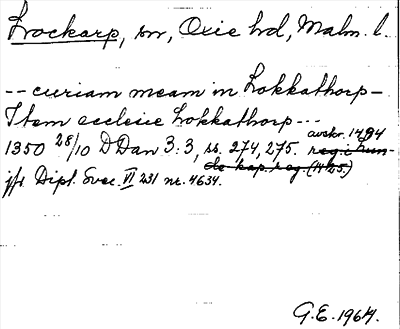 Lockarp, sn, Oxie hd, Malm. l.
-- curiam meam in Lokkathorp -
Item ecclesie Lokkathorp ---
avskr. 1494
1350 28/10 DDan 3:3, ss. 274, 275. regi Lun-
de kap. reg. (1425.)
jfr Dipl. Svec. VI 231 nr. 4634.
G.E. 1964.